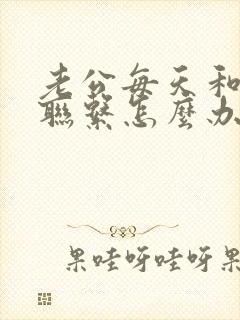 老公每天和
聯繫怎麼办
果哇呀哇呀果